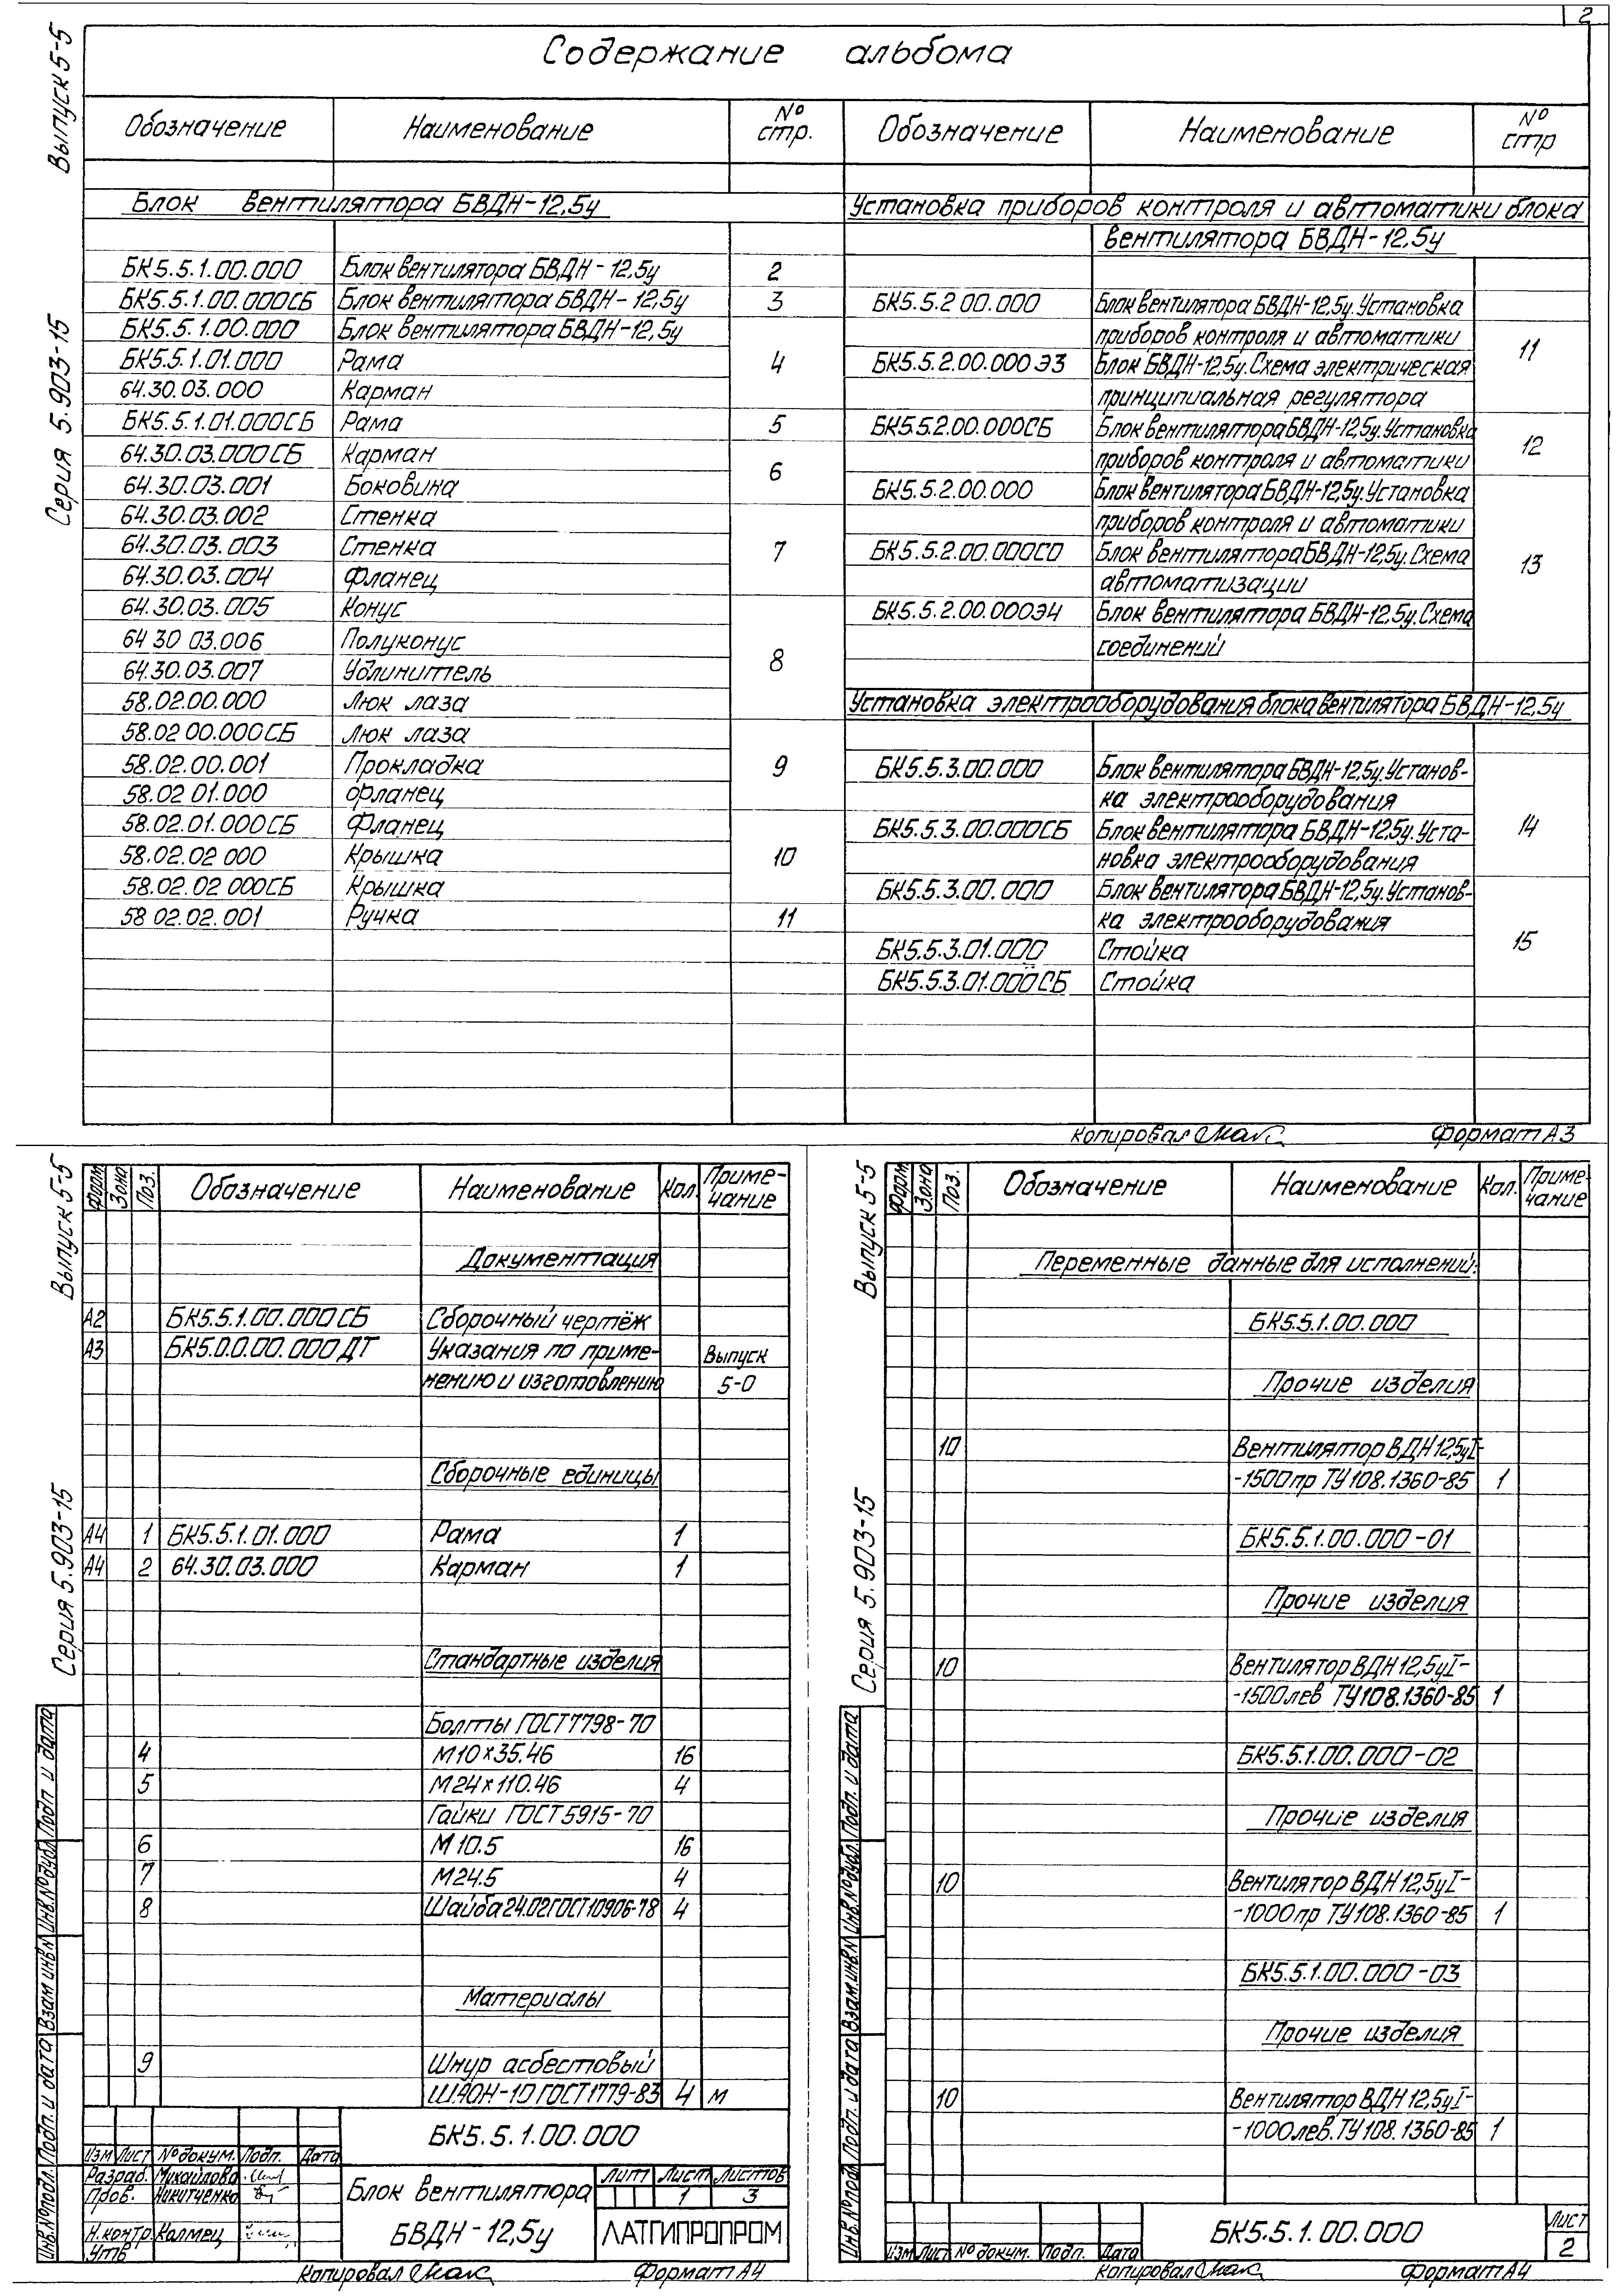 2
Выпуск 5-5
Серия 5.903-15
Содержание альбома
Обозначение Наименование № стр. Обозначение Наименование № стр
Блок вентилятора БВДН-12,5у
БК5.5.1.00.000 Блок вентилятора БВДН-12,5у 2
БК5.5.1.00.000СБ Блок вентилятора БВДН-12,5у 3
БК5.5.1.00.000 Блок вентилятора БВДН-12,5у
БК5.5.1.01.000 Рама 4
64.30.03.000 Карман
БК5.5.1.01.000СБ Рама 5
64.30.03.000СБ Карман 6
64.30.03.001 Боковина
64.30.03.002 Стенка
64.30.03.003 Стенка 7
64.30.03.004 Фланец
64.30.03.005 Конус
64 30 03.006 Полуконус 8
64.30.03.007 Удлинитель
58.02.00.000 Люк лаза
58.02 00.000СБ Люк лаза
58.02.00.001 Прокладка 9
58.02 01.000 Фланец
58.02.01.000СБ Фланец
58.02.02 000 Крышка 10
58.02.02 000СБ Крышка
58 02.02.001 Ручка 11
Установка приборов контроля и автоматики блока
вентилятора БВДН-12,5у
БК5.5.2 00.000 Блок вентилятора БВДН-12,5у. Установка
приборов контроля и автоматики 11
БК5.5.2.00.000 Э3 Блок БВДН-12,5у. Схема электрическая
принципиальная регулятора
БК5.5.2.00.000СБ Блок вентилятора БВДН-12,5у. Установка 12
приборов контроля и автоматики
БК5.5.2.00.000 Блок вентилятора БВДН-12,5у. Установка
приборов контроля и автоматики
БК5.5.2.00.000СО Блок вентилятора БВДН-12,5у. Схема 13
автоматизации
БК5.5.2.00.000Э4 Блок вентилятора БВДН-12,5у. Схема
соединений
Установка электрооборудования блока вентилятора БВДН-12,5у
БК5.5.3.00.000 Блок вентилятора БВДН-12,5у. Установ-
ка электрооборудования
БК5.5.3.00.000СБ Блок вентилятора БВДН-12,5у. Уста- 14
новка электрооборудования
БК5.5.3.00.000 Блок вентилятора БВДН-12,5у. Установ-
ка электрооборудования
БК5.5.3.01.000 Стойка 15
БК5.5.3.01.000СБ Стойка
Копировал Формат А3
Выпуск 5-5
Серия 5.903-15
Форм. Зона Поз. Обозначение Наименование Кол. Приме-
чание
Документация
А2 БК5.5.1.00.000СБ Сборочный чертёж
А3 БК5.0.0.00.000ДТ Указания по приме- Выпуск
нению и изготовлению 5-0
Сборочные единицы
А4 1 БК5.5.1.01.000 Рама 1
А4 2 64.30.03.000 Карман 1
Стандартные изделия
Болты ГОСТ7798-70
4 М10×35.46 16
5 М24×110.46 4
Гайки ГОСТ5915-70
6 М10.5 16
7 М24.5 4
8 Шайба 24.02 ГОСТ10906-78 4
Материалы
9 Шнур асбестовый
ШАОН-10 ГОСТ1779-83 4 м
Инв.№подл. Подп. и дата Взам инв.№ Инв.№дубл. Подп и дата
БК5.5.1.00.000
Изм Лист № докум. Подп. Дата
Разраб. Михайлова
Пров. Никитченко
Н.контр. Калмец
Утв
Блок вентилятора
БВДН-12,5у
Лит Лист Листов
1 3
ЛАТГИПРОПРОМ
Копировал Формат А4
Выпуск 5-5
Серия 5.903-15
Форм. Зона Поз. Обозначение Наименование Кол. Приме-
чание
Переменные данные для исполнений:
БК5.5.1.00.000
Прочие изделия
10 Вентилятор ВДН12,5уI-
-1500пр ТУ108.1360-85 1
БК5.5.1.00.000-01
Прочие изделия
10 Вентилятор ВДН12,5уI-
-1500лев ТУ108.1360-85 1
БК5.5.1.00.000-02
Прочие изделия
10 Вентилятор ВДН12,5уI-
-1000пр ТУ108.1360-85 1
БК5.5.1.00.000-03
Прочие изделия
10 Вентилятор ВДН12,5уI-
-1000лев.ТУ108.1360-85 1
Инв.№подл. Подп. и дата Взам.инв.№ Инв.№дубл. Подп. и дата
Изм Лист № докум. Подп. Дата
БК5.5.1.00.000
Лист
2
Копировал Формат А4